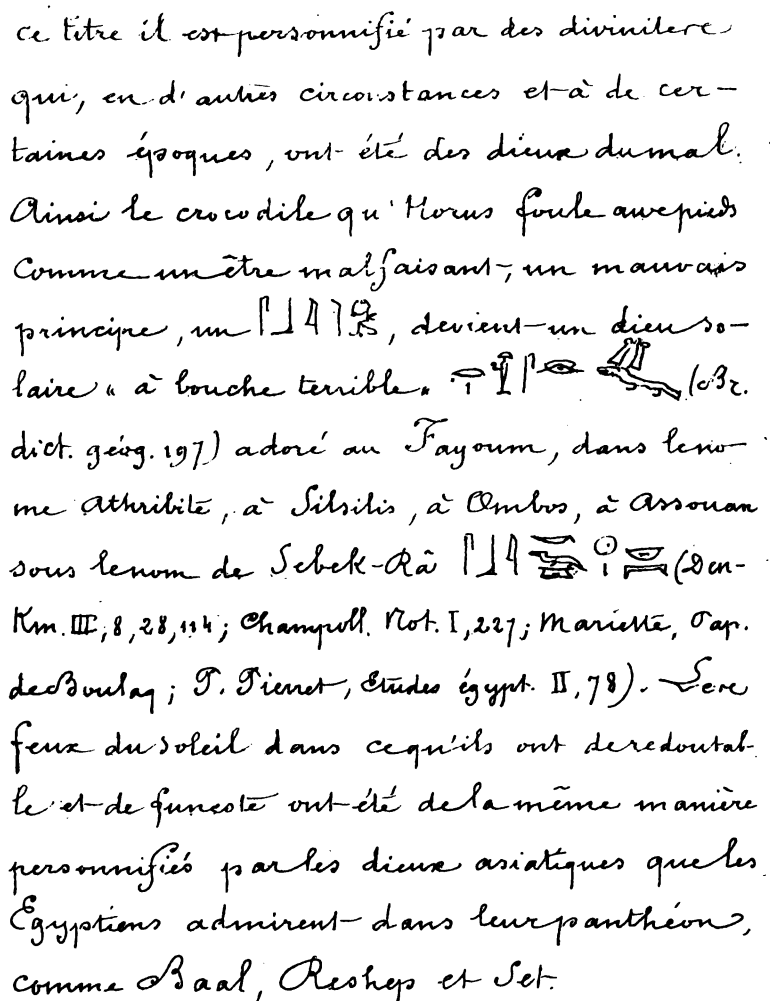 ce titre il est personnifié par des divinités
qui, en d'autres circonstances et à de cer-
taines époques, ont été des dieux du mal.
Ainsi le crocodile qu'Horus foule aux pieds
comme un être malfaisant, un mauvais
principe, un 𓋴𓃀𓇋, devient un dieu so-
laire « à bouche terrible » (Br.
dict. géog. 197) adoré au Fayoum, dans le no-
me Athribite, à Silsilis, à Ombos, à Assouan
sous le nom de Sebek-Râ 𓋴𓃀 (Den-
Km. III, 8, 28, 114; Champoll. Not. I, 227; Mariette, Pap.
de Boulaq; P. Pierret, Études égypt. II, 78). Les
feux du soleil dans ce qu'ils ont de redoutab-
le et de funeste ont été de la même manière
personnifiés par les dieux asiatiques que les
Egyptiens admirent dans leur panthéon,
comme Baal, Reshep et Set.